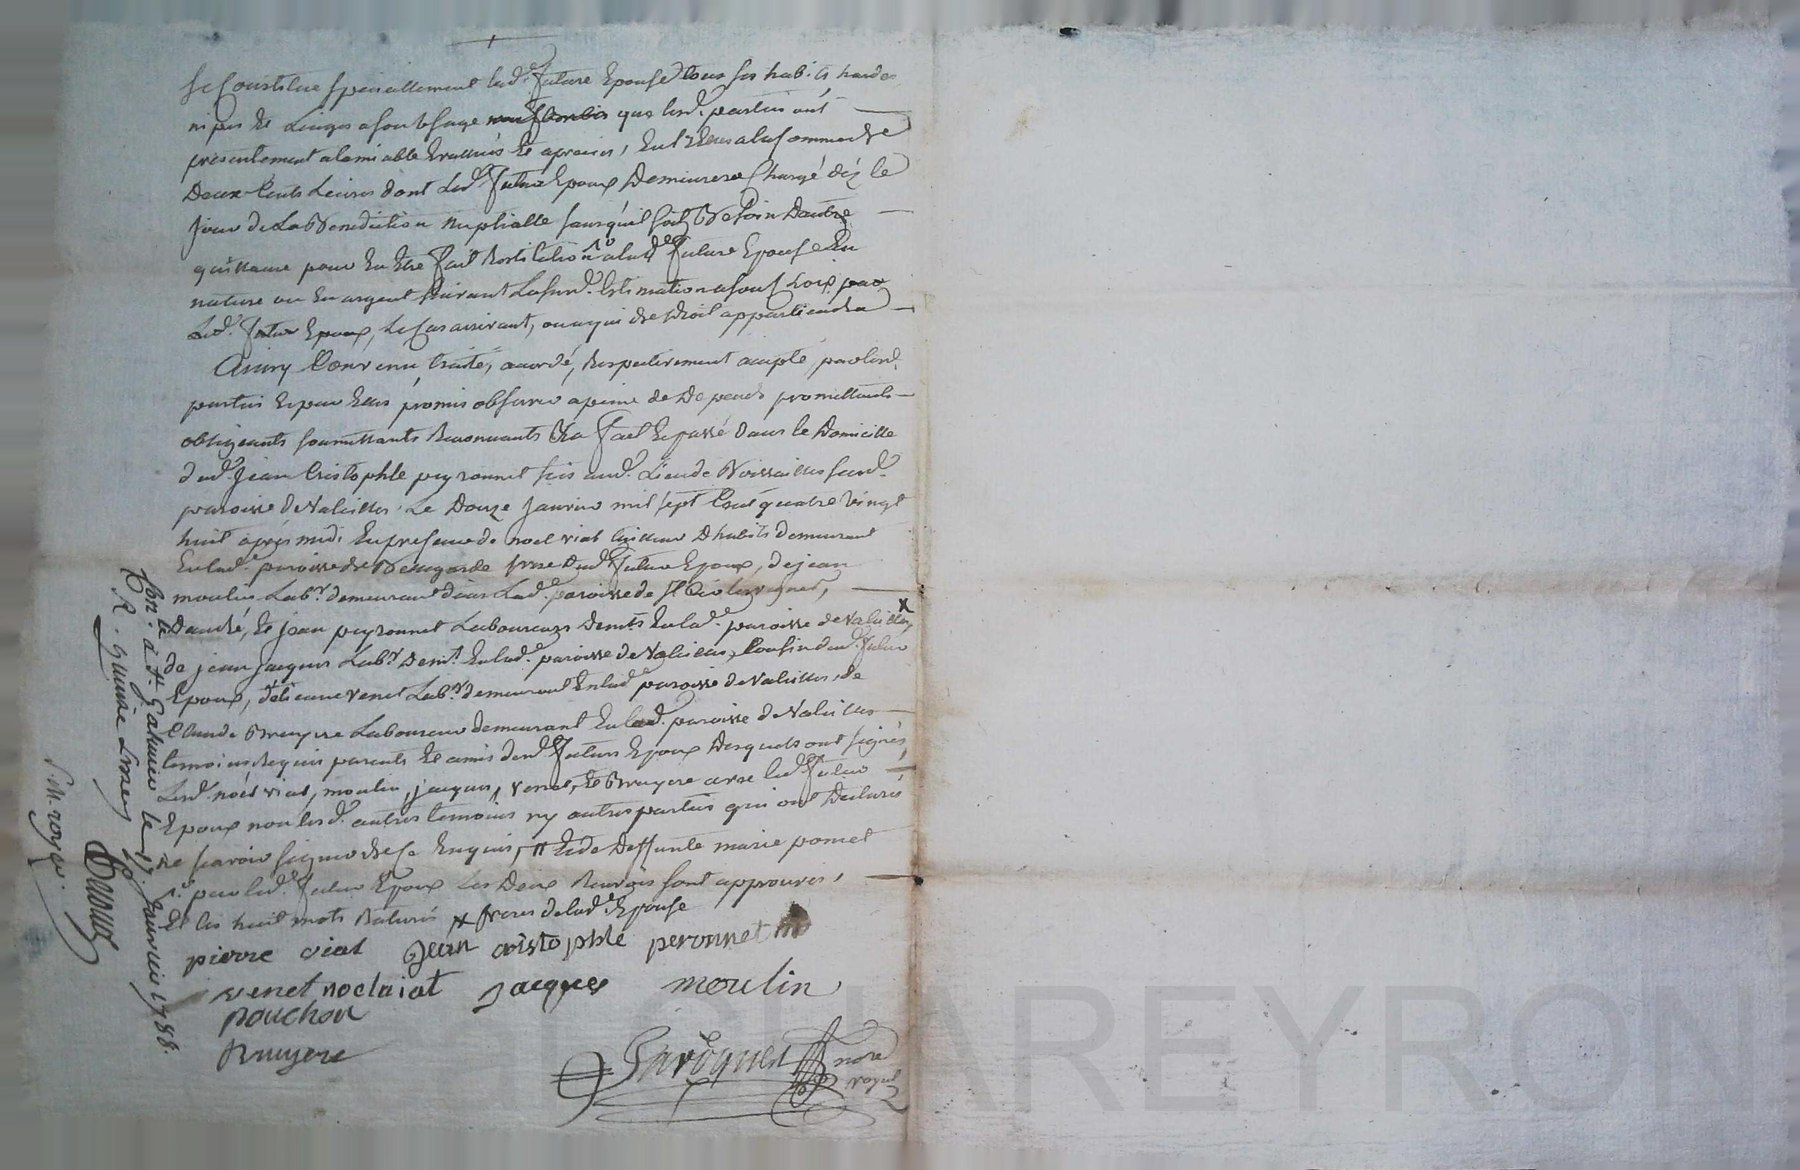 se Constitue specialement lad.e future Epouse tous ses habits hardes
nipes et Linges a son Usage que lesd. parties ont
presentement a lamiable Evalués et apreciés, Entre Eux a la somme de
Deux Cents Livres dont Led.t futur Epoux Demeurera Chargé déz le
jour de La Benediction Nuptialle sans quil soit Besoin Dautre
quittance pour En Etre fait Restitution a lad.e future Epouse En
nature ou En argent suivant La susd.e Estimation par
Led.t futur Epoux, Le Cas arrivant, ou a qui de droit appartiendra
Ainsy Convenu, traité, accordé, Respectivement accepté, par lesd.
parties Et par Eux promis observer a peine de Depends promettants
obligeants soumettants Renonçants &a fait Et passé Dans le Domicille
dud. jean Cristophle peyronnet sis aud. Lieu de susd.
paroisse de Valeilles Le Douze janvier mil sept Cent quatre vingt
huit aprés midi En presence de noel viat tailleur Dhabits demeurant
En lad.e paroisse de Bellegarde frere Dud.t futur Epoux, de jean
moulin Lab.r demeurant dans Lad.e paroisse de St
Et jean peyronnet Laboureurs Dem.ts En lad.e paroisse de Valeilles, x
de jean jacques Lab.r Dem.t En lad.e paroisse de Valeilles, Cousin dud.t futur
Epoux, venet Lab.r demeurant En lad.e paroisse de Valeilles, de
Claude Bruyere Laboureur demeurant En lad.e paroisse de Valeilles
temoins Requis parents Et amis desd. futurs Epoux Desquels ont signés
Lesd. noel viat, moulin, jacques, venet, Et Bruyere avec led.t futur
Epoux non lesd. autres temoins ny autres parties qui ont Declarés
ne savoir signer de ce Enquis, # Et de Deffunte marie pomet
par led.t futur Epoux Les Deux Renvois sont approuvés,
Et les huit mots Raturés x freres de lad.e Epouse
pierre viat Jean cristophle peronnet
venet noel viat jacques moulin
pouchon
Bruyere
nore
royal
Con.lé à St Galmier le 17. Janvier 1788.
LCHAREYRON